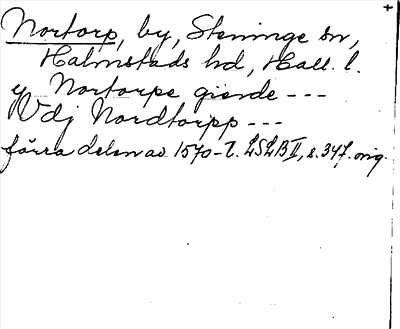 Nortorp, by, Steninge sn,
Halmstads hd, Hall. l.
y Nortorpe gierde ---
Wdj Nordtorpp ---
förra delen av 1570-t. LSLB II, s. 347. orig.